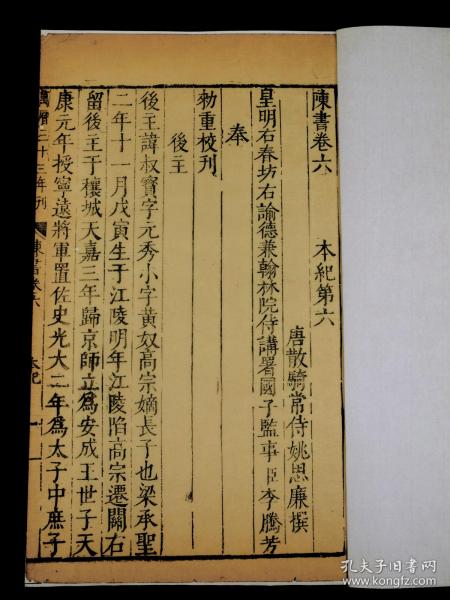 陳書卷六 本紀第六
唐散騎常侍姚思廉撰
皇明右春坊右諭德兼翰林院侍講署國子監事臣李騰芳
奉
勑重校刊
後主
後主諱叔寶字元秀小字黃奴高宗嫡長子也梁承聖
二年十一月戊寅生于江陵明年江陵陷高宗遷關右
留後主于穰城天嘉三年歸京師立爲安成王世子天
康元年授寧遠將軍置佐史光大二年爲太子中庶子
萬曆三十三年刊 陳書卷六 本紀 一
孔夫子旧书网
www.kongfz.com